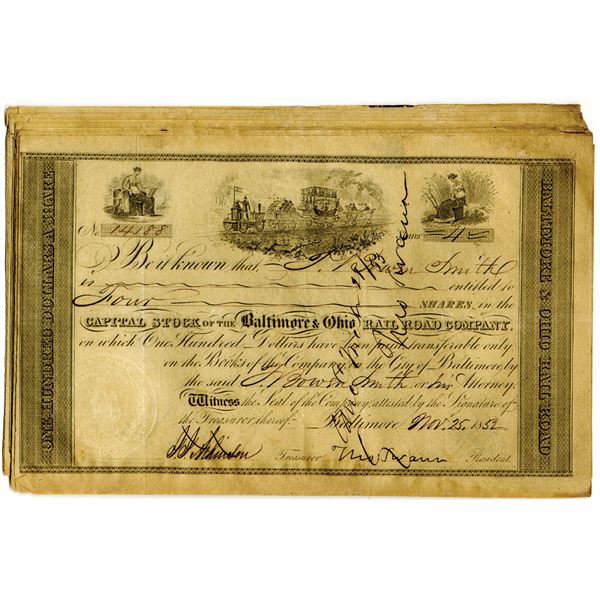 ONE HUNDRED DOLLARS A SHARE
No. 14188
4
Be it known that, J. Bowen Smith
is entitled to
Four SHARES in the
CAPITAL STOCK OF THE Baltimore & Ohio RAIL ROAD COMPANY,
on which One Hundred Dollars have been paid, transferable only
on the Books of the Company, in the City of Baltimore, by
the said J. Bowen Smith or his Attorney.
Witness the Seal of the Company, attested by the Signature of
the Treasurer, thereof. Baltimore Nov. 25, 1852
Treasurer Tho. Swann President
BALTIMORE & OHIO RAIL ROAD